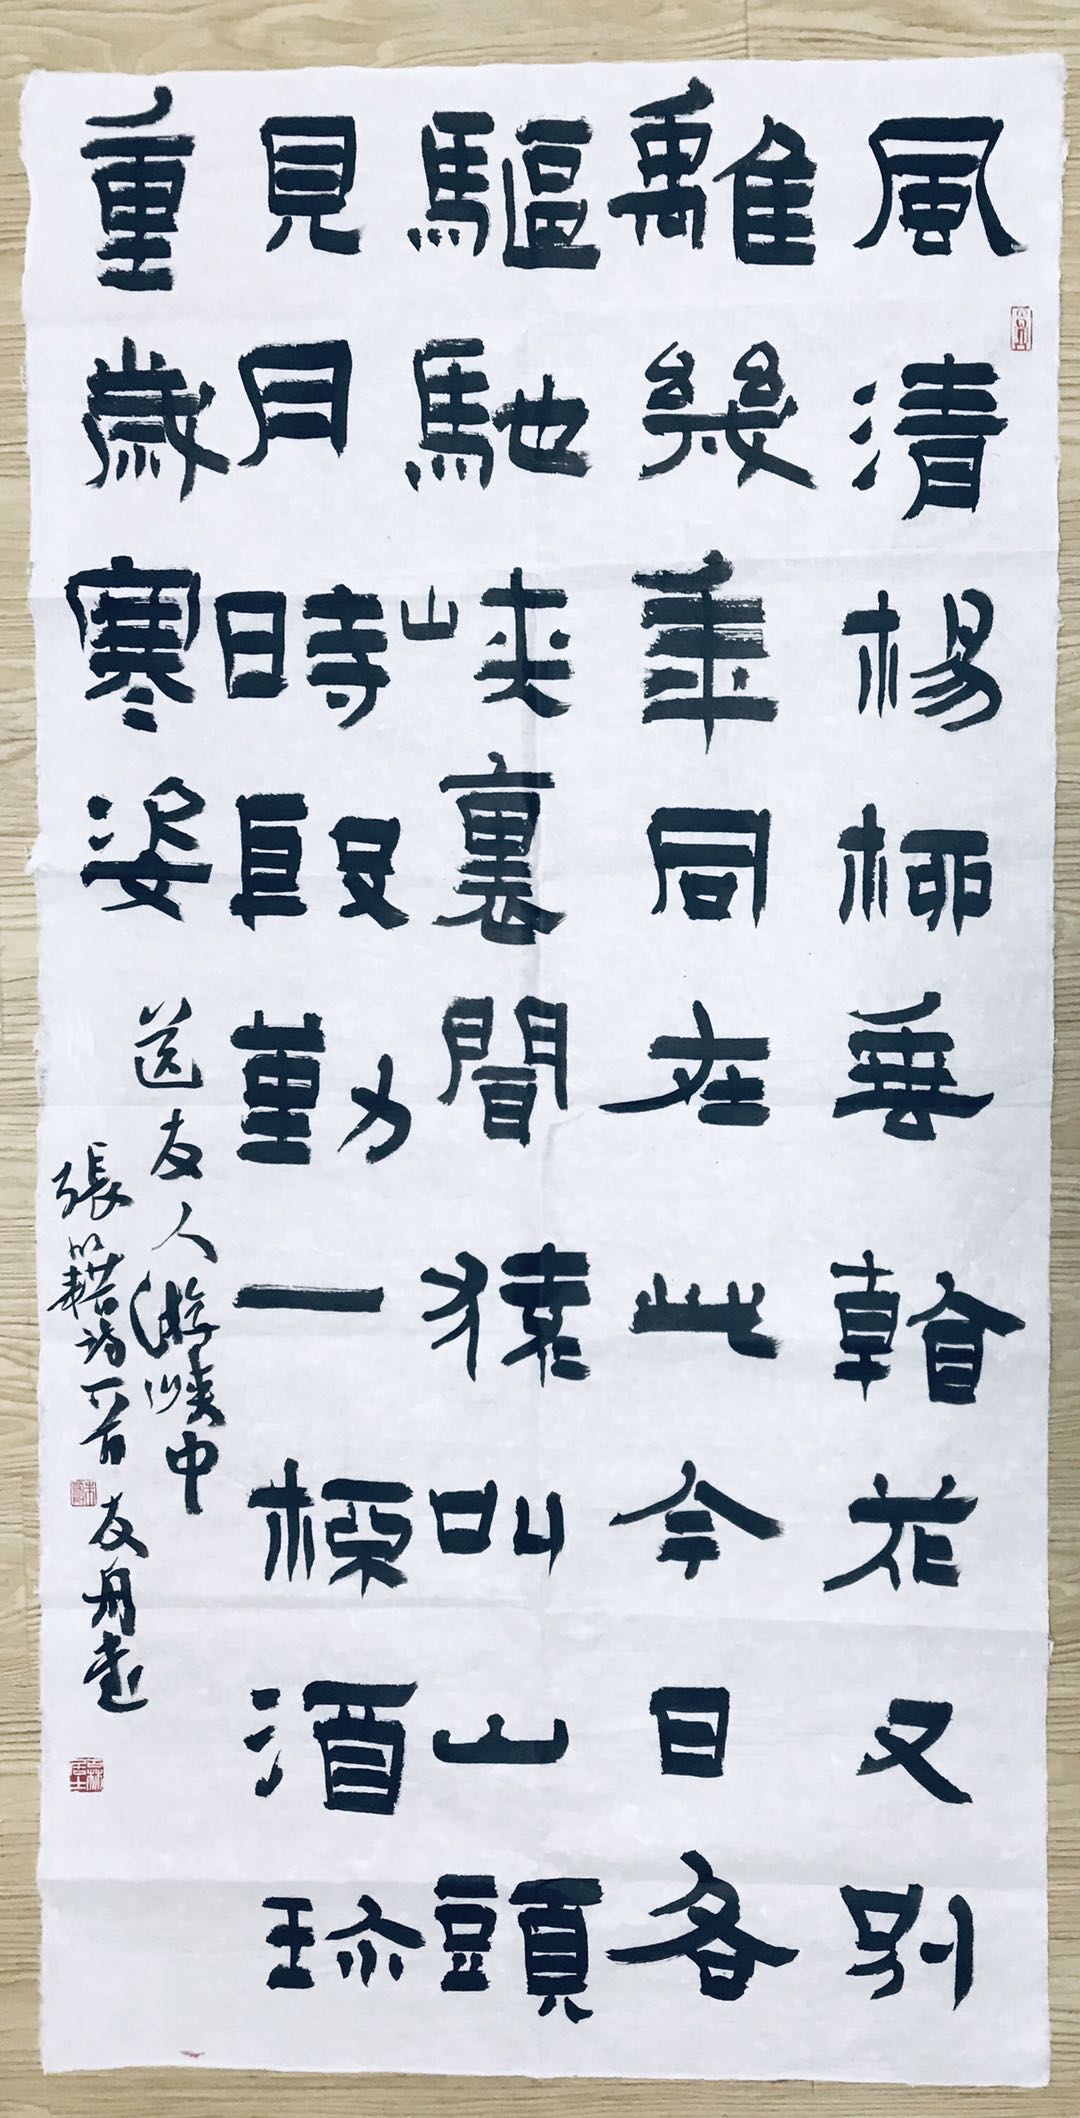 風清楊柳垂看花又別
離幾年同在此今日各
驅馳峽裏聞猿叫山頭
見月時殷勤一杯酒珍
重歲寒姿
送友人游峽中
張籍詩一首 友舟書